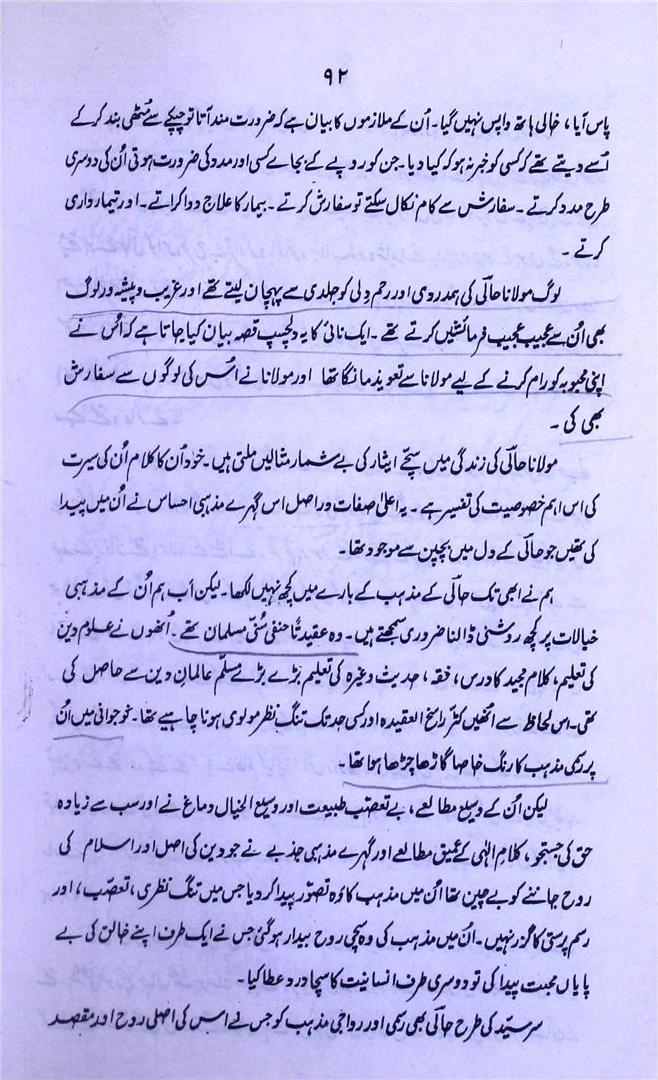 ۹۲
پاس آیا، خالی ہاتھ واپس نہیں گیا۔ اُن کے ملازموں کا بیان ہے کہ ضرورت مند آتا تو چپکے سے مُٹھی بند کرکے
اُسے دیتے تھے کہ کسی کو خبر نہ ہو کہ کیا دیا۔ جن کو روپے کے بجائے کسی اور مدد کی ضرورت ہوتی اُن کی دوسری
طرح مدد کرتے۔ سفارش سے کام نکال سکتے تو سفارش کرتے۔ بیمار کا علاج دوا کراتے۔ اور تیمارداری
کرتے۔
لوگ مولانا حالؔی کی ہمدردی اور رحم دِلی کو جلدی سے پہچان لیتے تھے اور غریب و پیشہ ور لوگ
بھی اُن سے عجیب عجیب فرمائشیں کرتے تھے۔ ایک نائی کا یہ دلچسپ قصہ بیان کیا جاتا ہے کہ اُس نے
اپنی محبوبہ کو رام کرنے کے لیے مولانا سے تعویذ مانگا تھا اور مولانا نے اُس کی لوگوں سے سفارش
بھی کی۔
مولانا حالؔی کی زندگی میں سچّے ایثار کی بے شمار مثالیں ملتی ہیں۔ خود اُن کا کلام اُن کی سیرت
کی اس اہم خصوصیت کی تفسیر ہے۔ یہ اعلیٰ صفات دراصل اس گہرے مذہبی احساس نے اُن میں پیدا
کی تھیں جو حالؔی کے دل میں بچپن سے موجود تھا۔
ہم نے ابھی تک حالؔی کے مذہب کے بارے میں کچھ نہیں لکھا۔ لیکن اب ہم اُن کے مذہبی
خیالات پر کچھ روشنی ڈالنا ضروری سمجھتے ہیں۔ وہ عقیدتاً حنفی سُنّی مسلمان تھے۔ اُنھوں نے علوم دین
کی تعلیم، کلام مجید کا درس، فقہ، حدیث وغیرہ کی تعلیم بڑے بڑے مسلّم عالمانِ دین سے حاصل کی
تھی۔ اس لحاظ سے اُنھیں کٹر راسخ العقیدہ اور کسی حد تک تنگ نظر مولوی ہونا چاہیے تھا۔ نوجوانی میں اُن
پر رسمی مذہب کا رنگ خاصا گاڑھا چڑھا ہوا تھا۔
لیکن اُن کے وسیع مطالعے، بے تعصّب طبیعت اور وسیع الخیال دماغ نے اور سب سے زیادہ
حق کی جستجو، کلامِ الٰہی کے عمیق مطالعے اور گہرے مذہبی جذبے نے جو دین کی اصل اور اسلام کی
روح جاننے کو بے چین تھا اُن میں مذہب کا وہ تصوّر پیدا کر دیا جس میں تنگ نظری، تعصّب، اور
رسم پرستی کا گزر نہیں۔ اُن میں مذہب کی وہ سچی روح بیدار ہوگئی جس نے ایک طرف اپنے خالق کی بے
پایاں محبت پیدا کی تو دوسری طرف انسانیت کا سچا درد عطا کیا۔
سرسیّد کی طرح حالؔی بھی رسمی اور رواجی مذہب کو جس نے اس کی اصلی روح اور مقصد